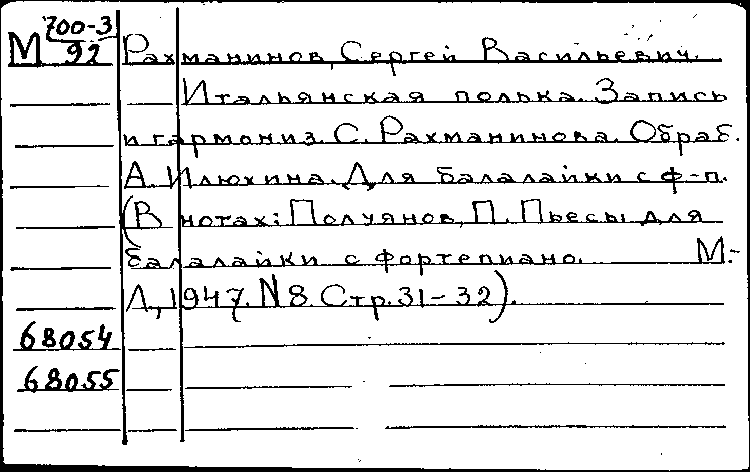 М 700-3/92
Рахманинов, Сергей Васильевич.
Итальянская полька. Запись
и гармониз. С. Рахманинова. Обраб.
А. Илюхина. Для балалайки с ф-п.
(В нотах: Полуянов, П. Пьесы для
балалайки с фортепиано. М.-
Л., 1947. N 8. Стр. 31-32).
68054
68055